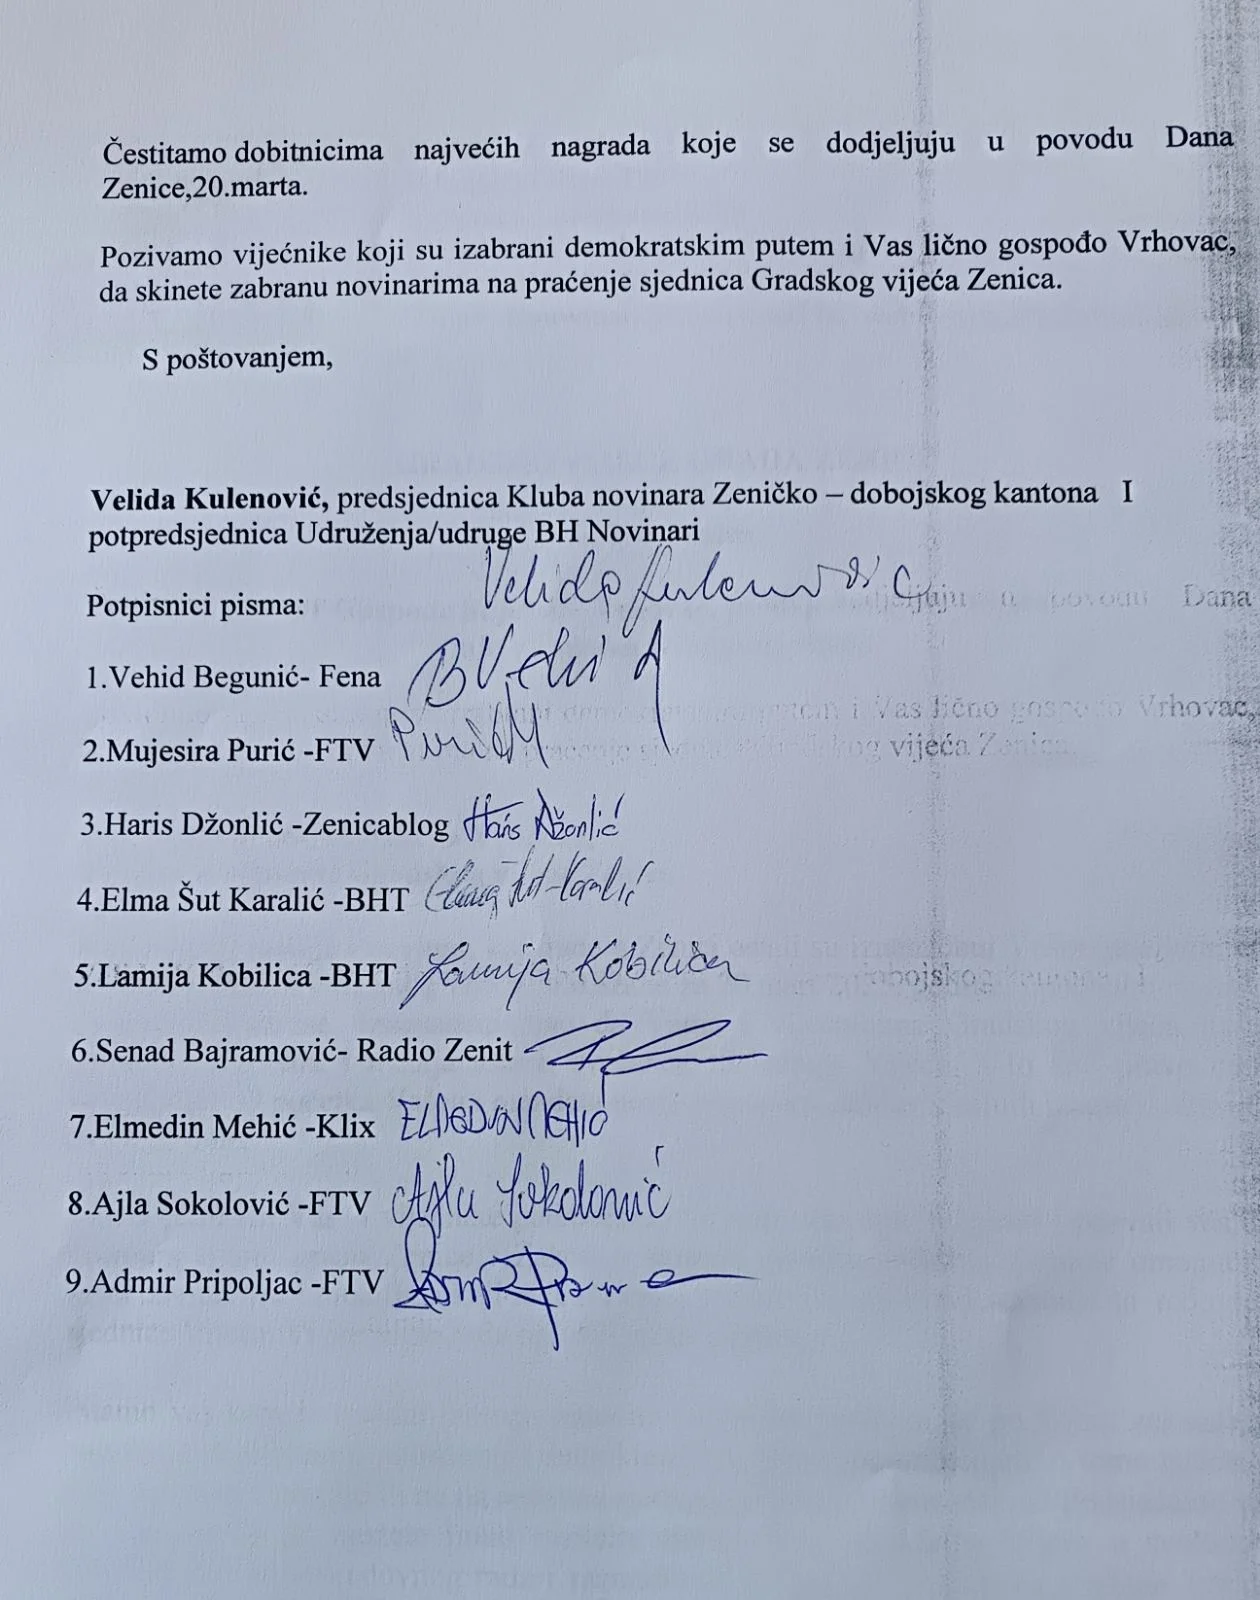 Čestitamo dobitnicima najvećih nagrada koje se dodjeljuju u povodu Dana
Zenice,20.marta.
Pozivamo vijećnike koji su izabrani demokratskim putem i Vas lično gospođo Vrhovac,
da skinete zabranu novinarima na praćenje sjednica Gradskog vijeća Zenica.
S poštovanjem,
Velida Kulenović, predsjednica Kluba novinara Zeničko – dobojskog kantona I
potpredsjednica Udruženja/udruge BH Novinari
Velida Kulenović
Potpisnici pisma:
povodu Dana
1.Vehid Begunić- Fena
i Vas lično Vrhovac,
2.Mujesira Purić -FTV Purić M
vijeća
3.Haris Džonlić -Zenicablog Haris Džonlić
4.Elma Šut Karalić -BHT Elma Šut-Karalić
5.Lamija Kobilica -BHT Lamija Kobilica
6.Senad Bajramović- Radio Zenit
7.Elmedin Mehić -Klix ELMEDIN MEHIĆ
8.Ajla Sokolović -FTV Ajla Sokolović
9.Admir Pripoljac -FTV